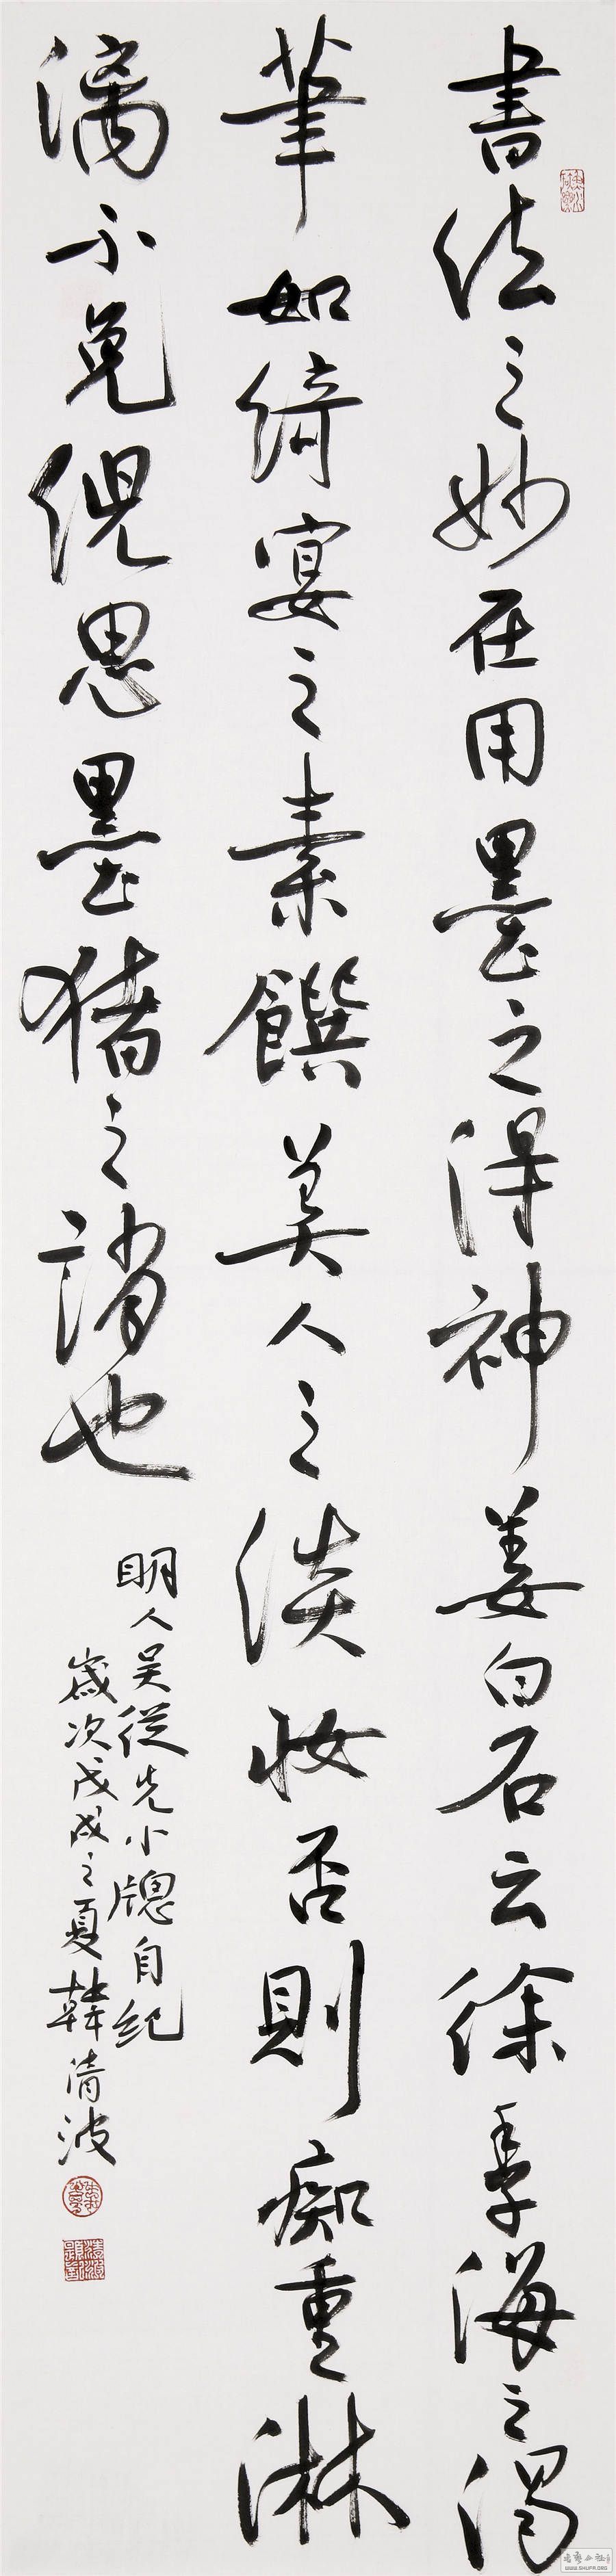 書法之妙在用墨之得神姜白石云徐季海之渴
筆如綺宴之素饌美人之淡妝否則痴重淋
漓不免倪思墨豬之誚也
明人吳從先小牕自紀
歲次戊戌之夏韓清波
WWW.SHUFR.ORG